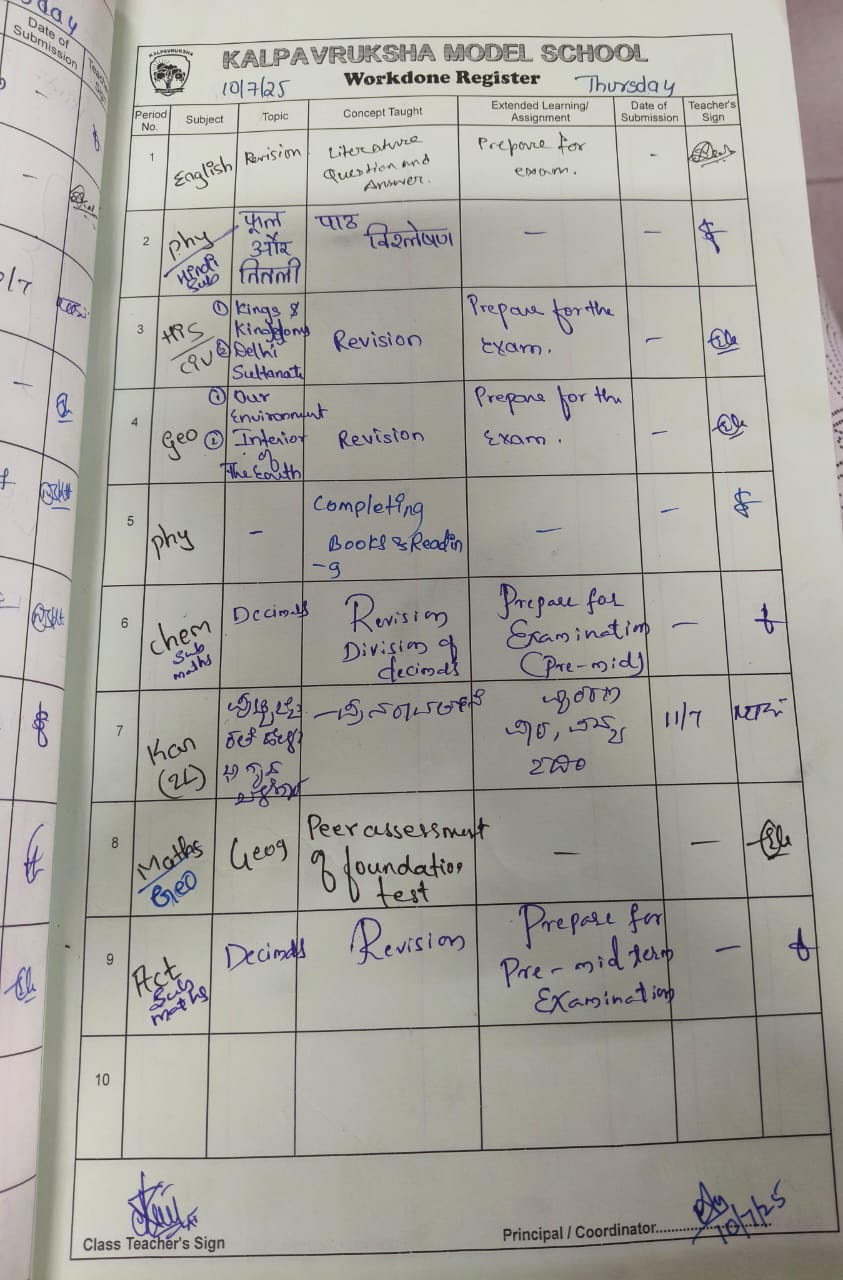 day
Date of
Submission
KALPAVRUKSHA
KALPAVRUKSHA MODEL SCHOOL
10/7/25 Workdone Register Thursday
Period No. Subject Topic Concept Taught Extended Learning/ Assignment Date of Submission Teacher's Sign
1 English Revision Literature Question and Answer. Prepare for exam. -
2 Phy/Hindi Sub फूल और तितली पाठ विश्लेषण — —
3 HIS/CIV ① Kings & Kingdoms ② Delhi Sultanate Revision Prepare for the Exam. —
4 Geo ① Our Environment ② Interior of The Earth Revision Prepare for the Exam. —
5 phy - Completing Books & Readin-g — —
6 Chem Sub maths Decimals Revision Division of decimals Prepare for Examination (Pre-mid) —
7 Kan (2L) 11/7
8 Maths/Geo Geog Peer assessment of foundation test — —
9 Act Sub maths Decimals Revision Prepare for Pre-mid term Examination —
10
Class Teacher's Sign
Principal / Coordinator
10/7/25